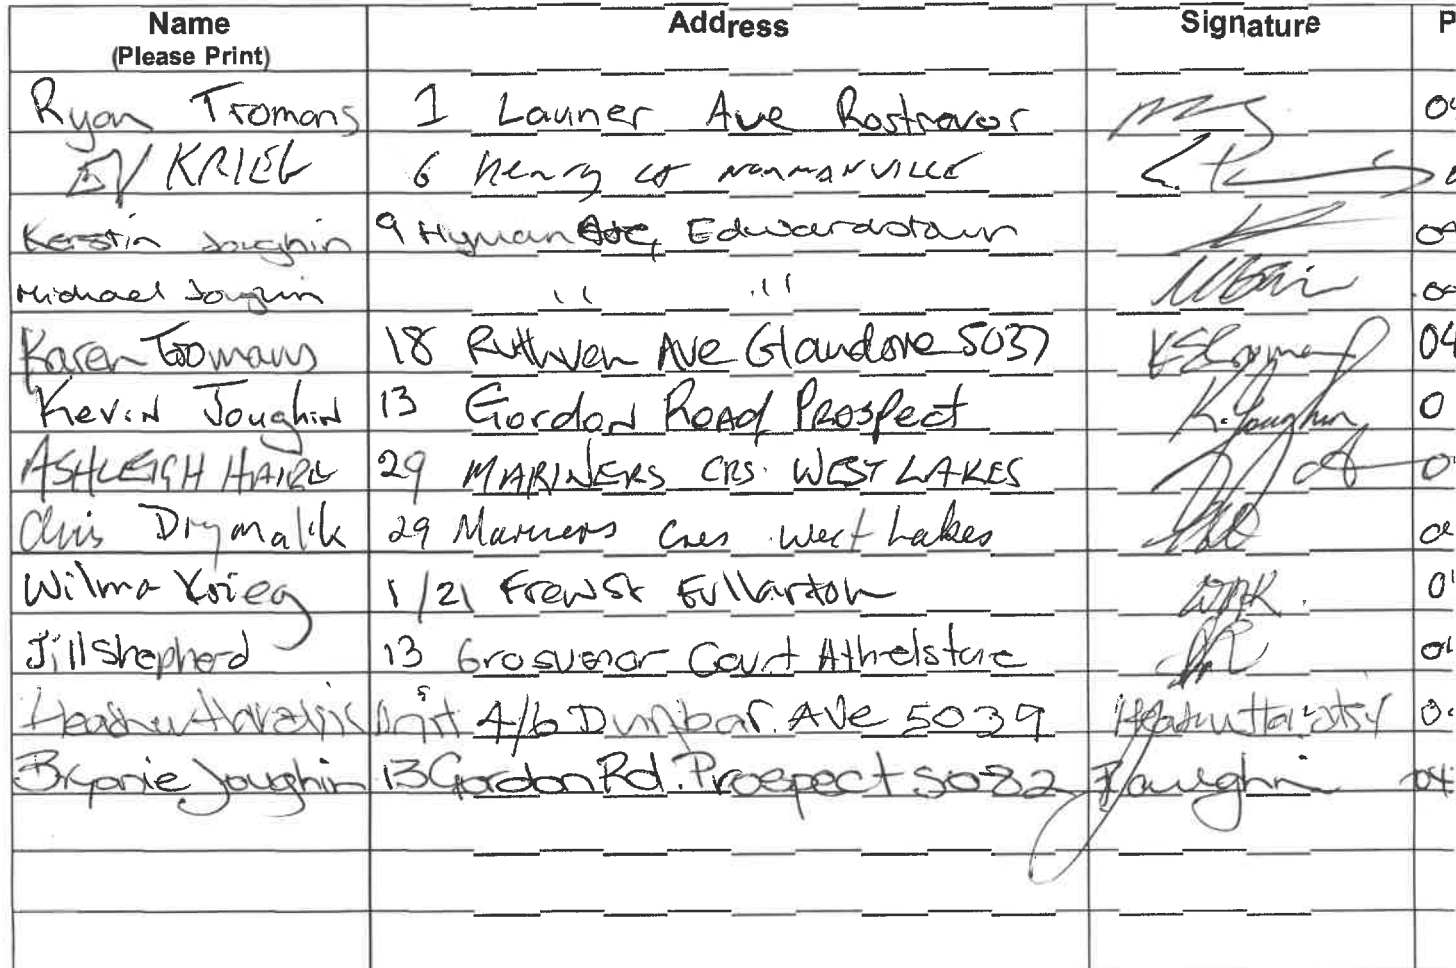 Name Address Signature P
(Please Print)
Ryan Tromans 1 Launer Ave Rostrevor 04
KRIEG 6 Henry ct NORMANVILLE
Kerstin Joughin 9 Hyman Ave, Edwardstown 04
Michael Joughin " " 04
Karen Tromans 18 Ruthven Ave Glandore 5037 04
Kevin Joughin 13 Gordon Road Prospect K. Joughin 0
ASHLEIGH HAIRE 29 MARINERS CRS WEST LAKES 0
Chris Drymalik 29 Mariners Cres West Lakes
Wilma Krieg 1/21 Frew St Fullarton WMK 0
Jill Shepherd 13 Grosvenor Court Athelstone 04
Heather Unit 4/6 Dunbar Ave 5039 0
Bryonie Joughin 13 Gordon Rd. Prospect 5082 Joughin 04